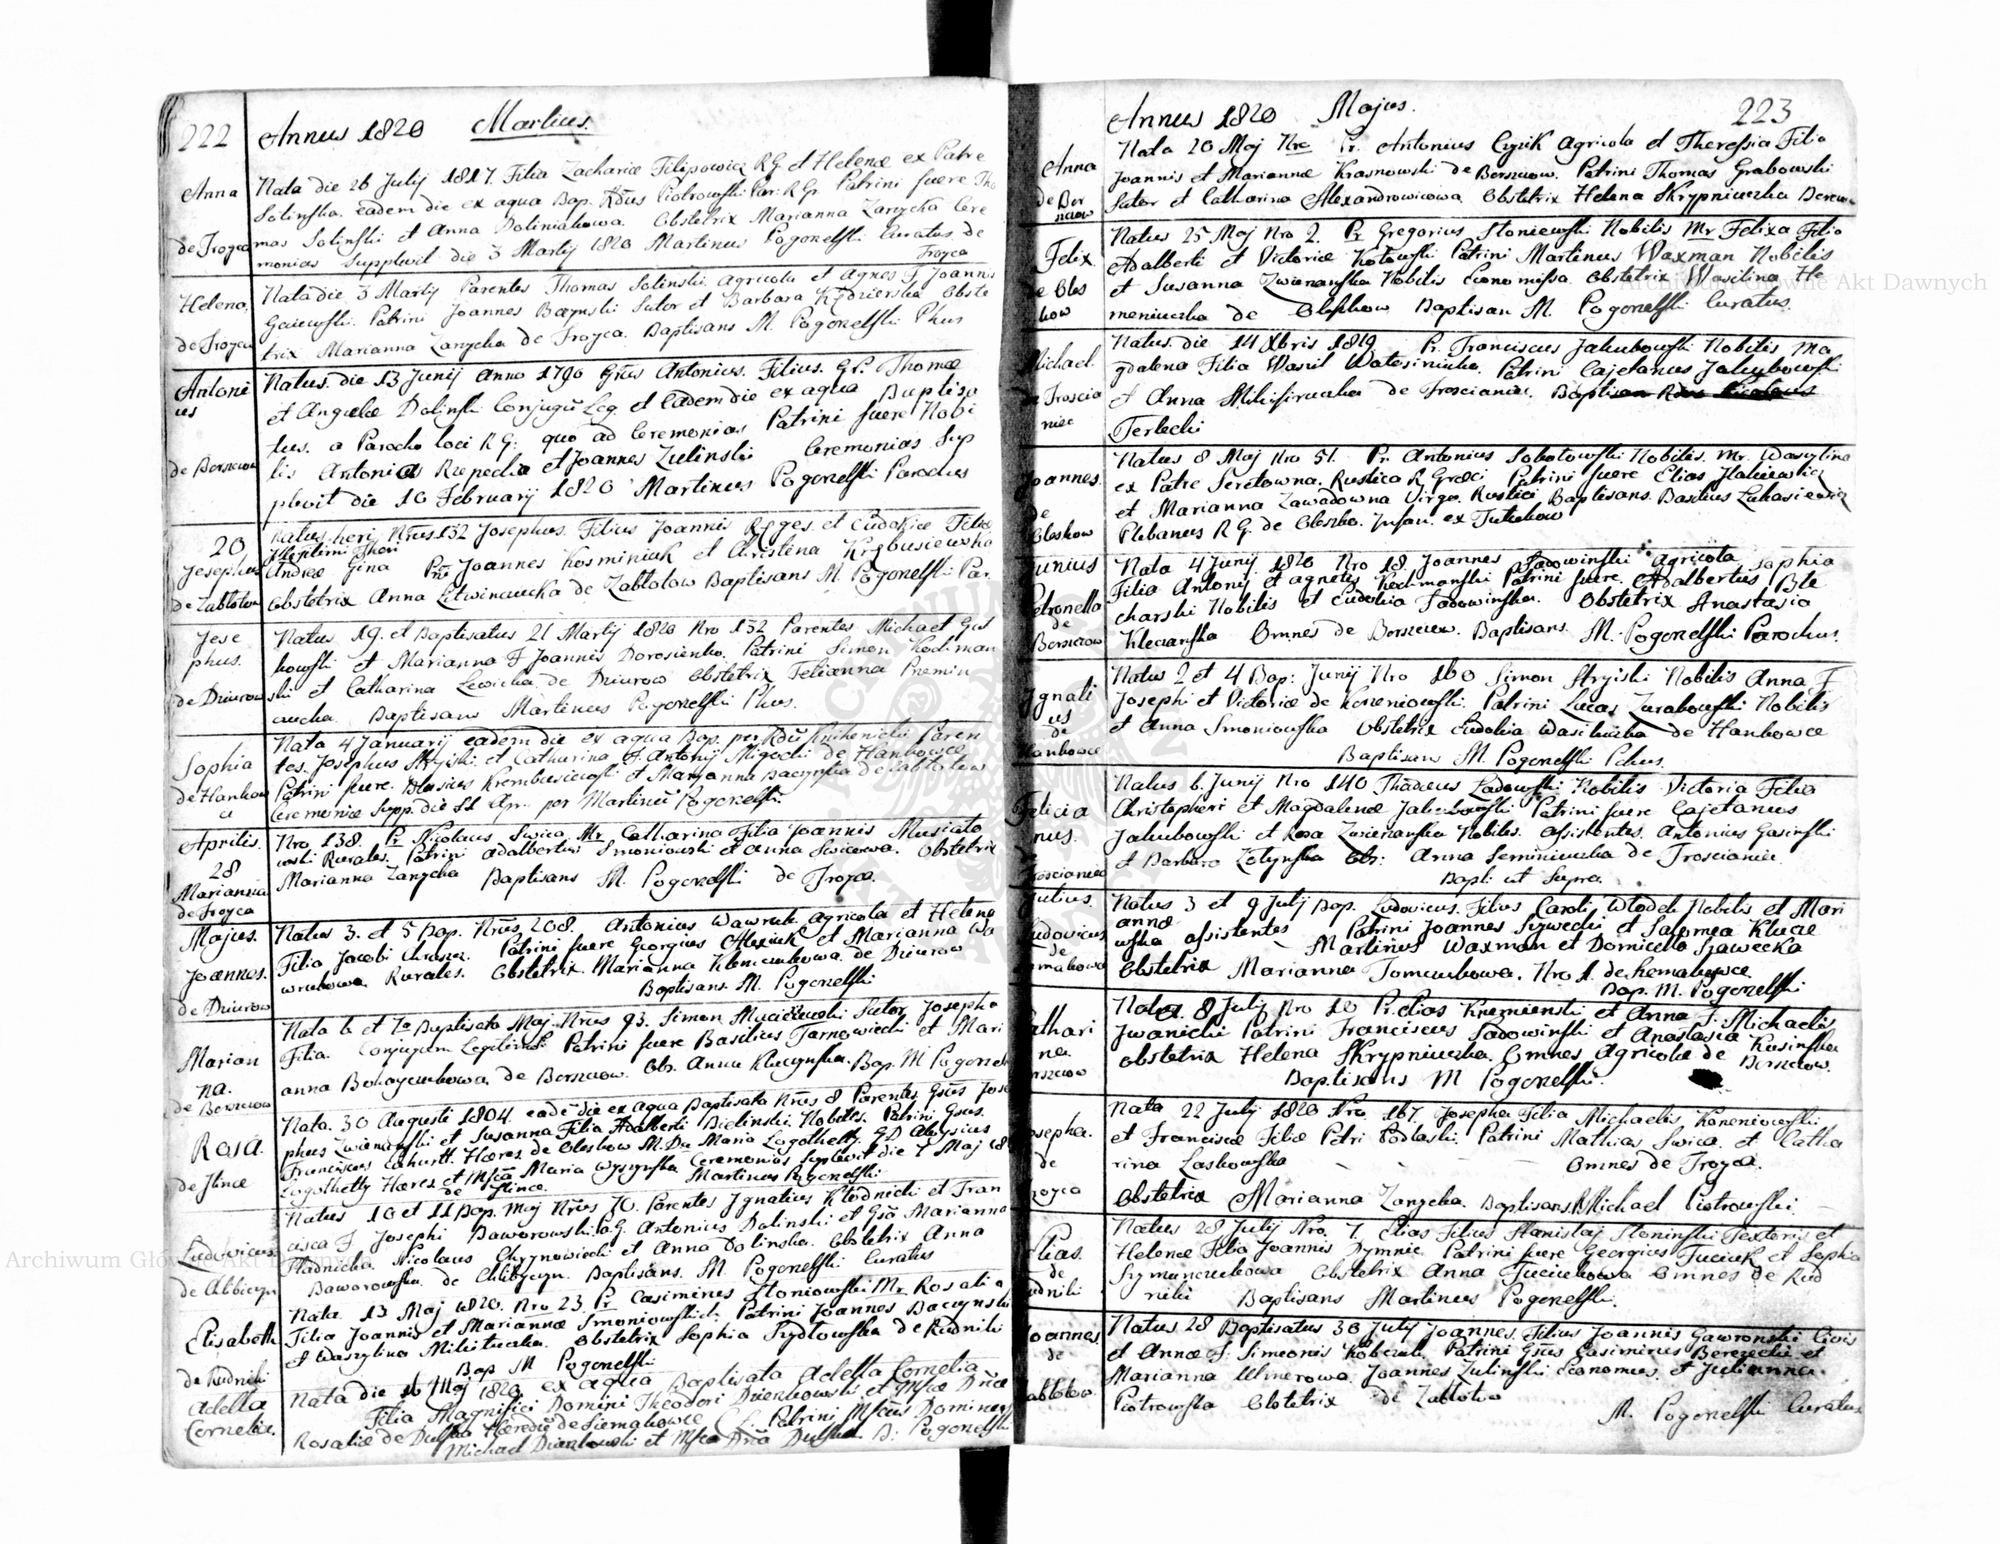 222
Annus 1820 Martius.
Anna
de Troyca
Nata die 26 July 1817. Filia Zachariæ Filipowicz RG et Helenæ ex Patre
Solinska. eadem die ex aqua Bap. Rdus Piotrowski Par. R Gr Patrini fuere Tho
mas Solinski et Anna Doliniakowa. Obstetrix Marianna Zanycka Cere
monias Supplevit die 3 Martij 1820 Martinus Pogonelski Curatus de
Troyca
Helena.
de Troyca
Nata die 3 Martij Parentes Thomas Solinski Agricola et Agnes F Joannis
Gaiewski. Patrini Joannes Sutor et Barbara Kędzierska Obste
trix Marianna Zanycka de Troyca. Baptisans M. Pogonelski Phus
Antoni
us
de Borszczow
Natus die 13 Junij Anno 1790 Gsus Antonius. Filius. Gr. Thomæ
et Angelæ Dolinski Conjugū Leg. et Eadem die ex aqua Baptisa
tus. a Parocho loci R G: quo ad Ceremonias Patrini fuere Nobi
lis Antonius Rzepecka et Joannes Zulinski Ceremonias Sup
plevit die 10 February 1820 Martinus Pogonelski Parochus
20
Josephus
de Zablotow
Natus heri Nrus 132 Josephus. Filius Joannis et Eudokiæ Filiæ
Illegitimi Thori
Andreæ Gina Pni Joannes Kosminiuk et Christina
Obstetrix Anna Litwinciucka de Zablotow Baptisans M. Pogonelski Par.
Jose
phus.
de Dziurow
Natus 19. et Baptisatus 21 Martij 1820 Nro 132 Parentes Michael Gut
kowski et Marianna F Joannis Dorosienko. Patrini Simon Kochman
ski et Catharina Lewicka de Dziurow Obstetrix Felianna Premin
ciucka. Baptisans Martinus Pogonelski Phus.
Sophia
de Hankow
ce
Nata 4 January eadem die ex aqua Bap. per Rdū Knihenicki Paren
tes. Josephus Stryiski et Catharina F. Antonij Migocki de Hankowce
Patrini fuere. Blasius et Marianna Baczynska de Zablotow
Ceremonias Supp. die 11 Ap. per Martinū Pogonelski.
Aprilis.
28
Marianna
de Troyca
Nro 138. Pr Nicolaus Swica Mr Catharina Filia Joannis Musiato
wski Rurales. Patrini Adalbertus Smoniowski et Anna Swicowa. Obstetrix
Marianna Zanycka Baptisans M. Pogonelski de Troyca.
Majus.
Joannes.
de Dziurow
Natus 3. et 5 Bap. Nrus 208. Antonius Wawruk Agricola et Helena
Filia Jacobi Patrini fuere Georgius Alexiuk et Marianna Wa
wrukowa Rurales. Obstetrix. Marianna Klemczukowa de Dziurow
Baptisans M. Pogonelski
Marian
na.
de Borszczow
Nata 6 et 7a Baptisata Maj Nrus 93. Simon Sutor Josepha
Filia. Conjugum Legitimor. Patrini fuere Basilius Tarnowiecki et Mari
anna de Borszczow. Obs. Anna Kluczynska. Bap. M Pogonels
Rosa.
de Ilince
Nata. 30 Augusti 1804. eadē die ex aqua Baptisata Nrus 8 Parentes Gsus Jose
phus Zwierzanski et Susanna Filia Adalberti Bielinski Nobiles. Patrini Gsus.
Franciscus Hæres de Oleskow M. Da Maria Logothetty. GD Aloysius
Logothetty Hæres et Msca Maria Wyszynska Ceremonias Suplevit die 7 Maj 18
de Ilince. Martinus Pogonelski
Ludovicus
de Chlibiczyn
Natus 10 et 11 Bap. Maj Nrus 76. Parentes Ignatius Kłodnicki et Fran
cisca F Josephi Daworowski. Antonius Dolinski et Gsa Marianna
Nicolaus et Anna Dolinska. Obstetrix Anna
Baworowska. de Chlibiczyn. Baptisans. M. Pogonelski Curatus
Elisabeth
de Rudniki
Nata. 13 Maj 1820. Nro 23. Pr Casimirus Stoniowski Mr Rosalia
Filia Joannis et Mariannæ Smoniowskich. Patrini Joannes Baczynski
et Waszylina Obstetrix Sophia Szydłowska de Rudniki
Bap M Pogonelski
Adella
Cornelia.
Nata die 16 Maj 1820 ex aqua Baptisata Adella Cornelia
Filia Magnifici Domini Theodori Dzienkowski et Mscæ Dnæ
Rosaliæ de Dulska Hæredis de Siemakowce Patrini Mscus Dominus
Michael Dzienkowski et Msca Dna Dulska. B: Pogonelski
223
Annus 1820 Majus.
Anna
de Bor
szczow
Nata 20 Maj Nro Pr. Antonius Cyzik Agricola et Theressia Filia
Joannis et Mariannæ Krasnowski de Borszczow. Patrini Thomas Grabowski
Sutor et Catharina Alexandrowiczowa Obstetrix Helena Skrypniuczka
Felix
de Oles
kow
Natus 25 Maj Nro 2. Pr Gregorius Stoniewski Nobilis Mr Felixa Filia
Adalberti et Victoriæ Kotowski Patrini Martinus Waxman Nobilis
et Susanna Zwierzanska Nobilis Economissa Obstetrix Wasilina He
meniuczka de Oleskow Baptisans M. Pogonelski Curatus.
Michael.
de Troscia
niec
Natus die 14 Xbris 1819 Pr. Franciscus Jakubowski Nobilis Ma
gdalena Filia Wasil Patrini Cajetanus Jakubowski
et Anna de Troscianiec. Baptisans Rdus Nicolaus
Terlecki
Joannes.
de
Oleskow
Natus 8 Maj Nro 51. Pr Antonius Sobotowski Nobilis. Mr. Waszylina
ex Patre Seretowna, Rustica R Græci Patrini fuere Elias Haliewicz
et Marianna Zawadowna Virgo. Rustici Baptisans. Basilius Lukasiewicz
Plebanus R G. de Olesko. Infan. ex Tulukow
Junius
Petronella
de
Borszczow
Nata 4 Junij 1820 Nro 18. Joannes Sadowinski Agricola Sophia
Filia Antonij et Agnetis Kochmanski Patrini fuere. Adalbertus Ble
charski Nobilis et Eudokia Sadowinska. Obstetrix Anastasia
Kluczanska Omnes de Borszczow. Baptisans M. Pogonelski Parochus.
Ignati
us
de
Hankowce
Natus 2 et 4 Bap: Junij Nro 160 Simon Stryiski Nobilis Anna F
Josephi et Victoriæ de Koneniowski. Patrini Lucas Zurakowski Nobilis
et Anna Smoniowska Obstetrix Eudokia Wasiluczka de Hankowce
Baptisans M. Pogonelski Plhus.
Felicia
nus.
de
Troscianiec
Natus 6 Junij Nro 140 Thadeus Ladowski Nobilis Victoria Filia
Christophori et Magdalenæ Jakubowski. Patrini fuere Cajetanus
Jakubowski et Rosa Zwierzanska Nobiles. Assistentes. Antonius Gasinski
et Barbara Zotynska Obs: Anna Seminiuczka de Troscianiec.
Bapt: ut Supra.
Julius.
Ludovicus
de
Siemakowce
Natus 3 et 9 July Bap. Ludovicus. Filius Caroli Wlodek Nobilis et Mari
annæ Patrini Joannes Szawecki et Salomea
wska assistentes Martinus Waxman et Domicella Szawecka
Obstetrix Marianna Tomczukowa. Nro 1. de Siemakowce
Bap. M. Pogonelski
Cathari
na.
Borszczow
Nata 8 July Nro 10 Pr. Elias Kremienski et Anna F. Michaelis
Iwanicki Patrini Franciscus Sadowinski et Anastasia Kusinska
Obstetrix Helena Skrypniuczka. Omnes Agricolæ de Borszczow.
Baptisans M Pogonelski.
Josepha.
de
Troyca
Nata 22 July 1820 Nro. 167. Josepha Filia Michaelis Koneniowski
et Franciscæ Filiæ Petri Podlaski Patrini Mathias Swica. et Catha
rina Laskowska Omnes de Troyca.
Obstetrix Marianna Zanycka. Baptisans R Michael Piotrowski.
Elias.
de
Rudniki
Natus 28 July Nro. 7. Elias Filius Stanislaj Stoninski Textoris et
Helenæ Filia Joannis Dymnic. Patrini fuere Georgius Tuciuk et Sophia
Szymanczukowa Obstetrix Anna Tuciukowa Omnes de Rud
niki Baptisans Martinus Pogonelski.
Joannes
de
Zablotow.
Natus 28 Baptisatus 30 July Joannes. Filius Joannis Gawronski Civis
et Annæ F. Simeonis Patrini Gsus Casimirus Berezecki et
Marianna Joannes Zulinski Economus, et Julianna
Piotrowska Obstetrix de Zablotow
M. Pogonelski Curatus
Archiwum Główne Akt Dawnych
Archiwum Główne Akt Dawnych